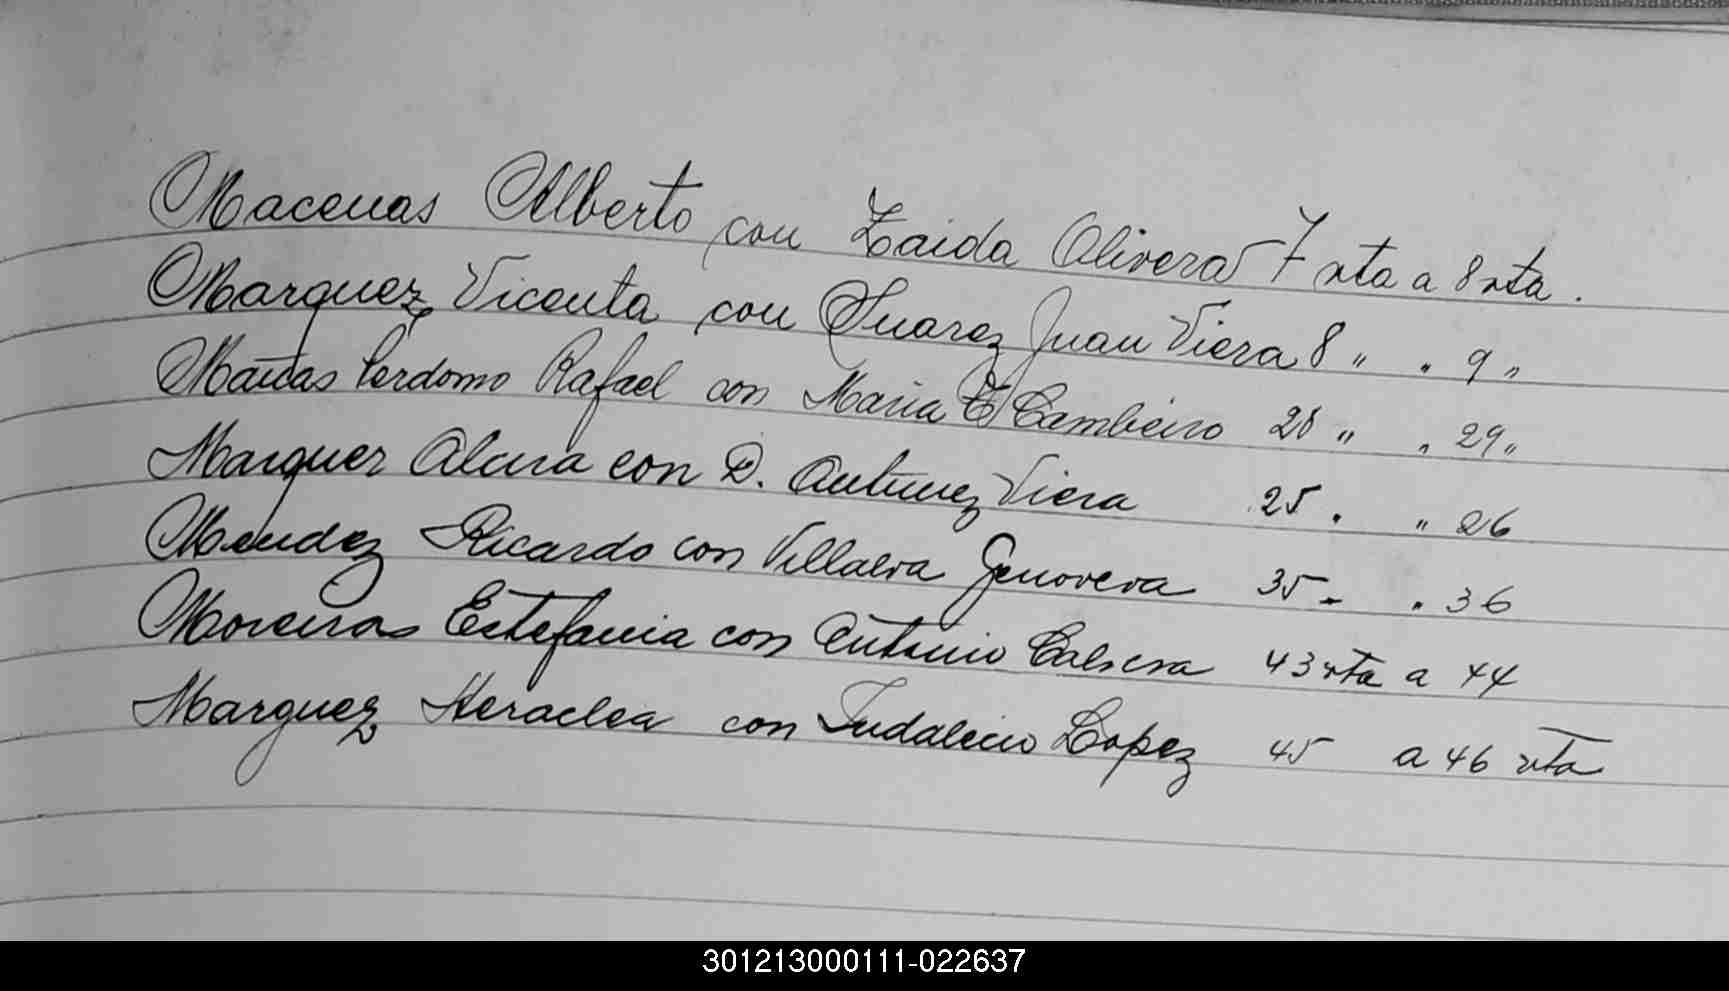 Macenas Alberto con Zaida Olivera 7 vta a 8 vta.
Marquez Vicenta con Suarez Juan Viera 8 " . 9 "
Perdomo Rafael con Maria E Cambeiro 28 " " 29 "
Marquez con D. Antunez Viera 25 . " 26
Mendez Ricardo con Villalva Genoveva 35 - " 36
Moreiras Estefania con Antonio Cabrera 43 vta a 44
Marquez Heraclea con Indalecio Lopez 45 a 46 vta
301213000111-022637